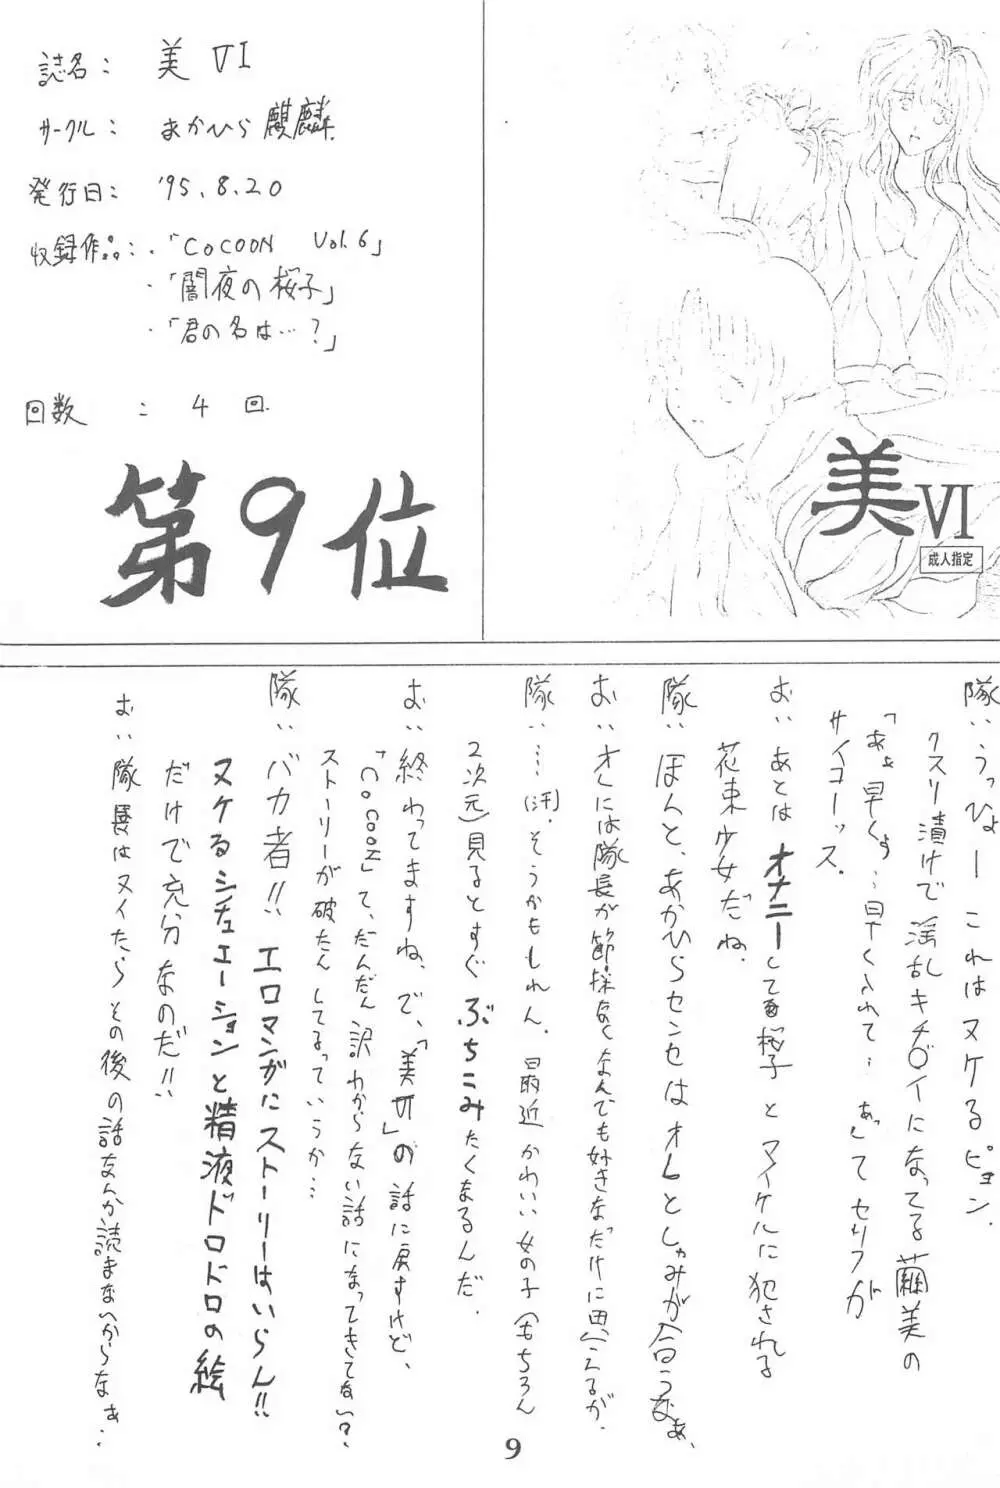 誌名： 美 VI
サークル： あかひら麒麟
発行日： '95.8.20
収録作品：・「COCOON Vol.6」
・「闇夜の桜子」
・「君の名は…？」
回数 ： 4 回
第9位
美VI
成人指定
隊：うっひょー これはヌケるピョン.
クスリ漬けで淫乱キチ〇イになってる繭美の
「あぁ早くぅ…早く入れて… あっ」てセリフが
サイコーッス.
お：あとはオナニーしてる桜子とマイケルに犯される
花束少女だね.
隊：ほんと、あかひらセンセはオレとしゅみが合うなぁ.
お：オレには隊長が節操なくなんでも好きなだけに思えるが.
隊：…(汗). そうかもしれん. 最近かわいい女の子(もちろん
2次元)見るとすぐぶちこみたくなるんだ.
お：終わってますね. で、「美VI」の話に戻すけど、
「COCOON」て、だんだん訳わからない話になってきてない？
ストーリーが破たんしてるっていうか…
隊：バカ者!! エロマンガにストーリーはいらん!!
ヌケるシチュエーションと精液ドロドロの絵
だけで充分なのだ!!
お：隊長はヌイたらその後の話なんか読まないからなぁ..
9